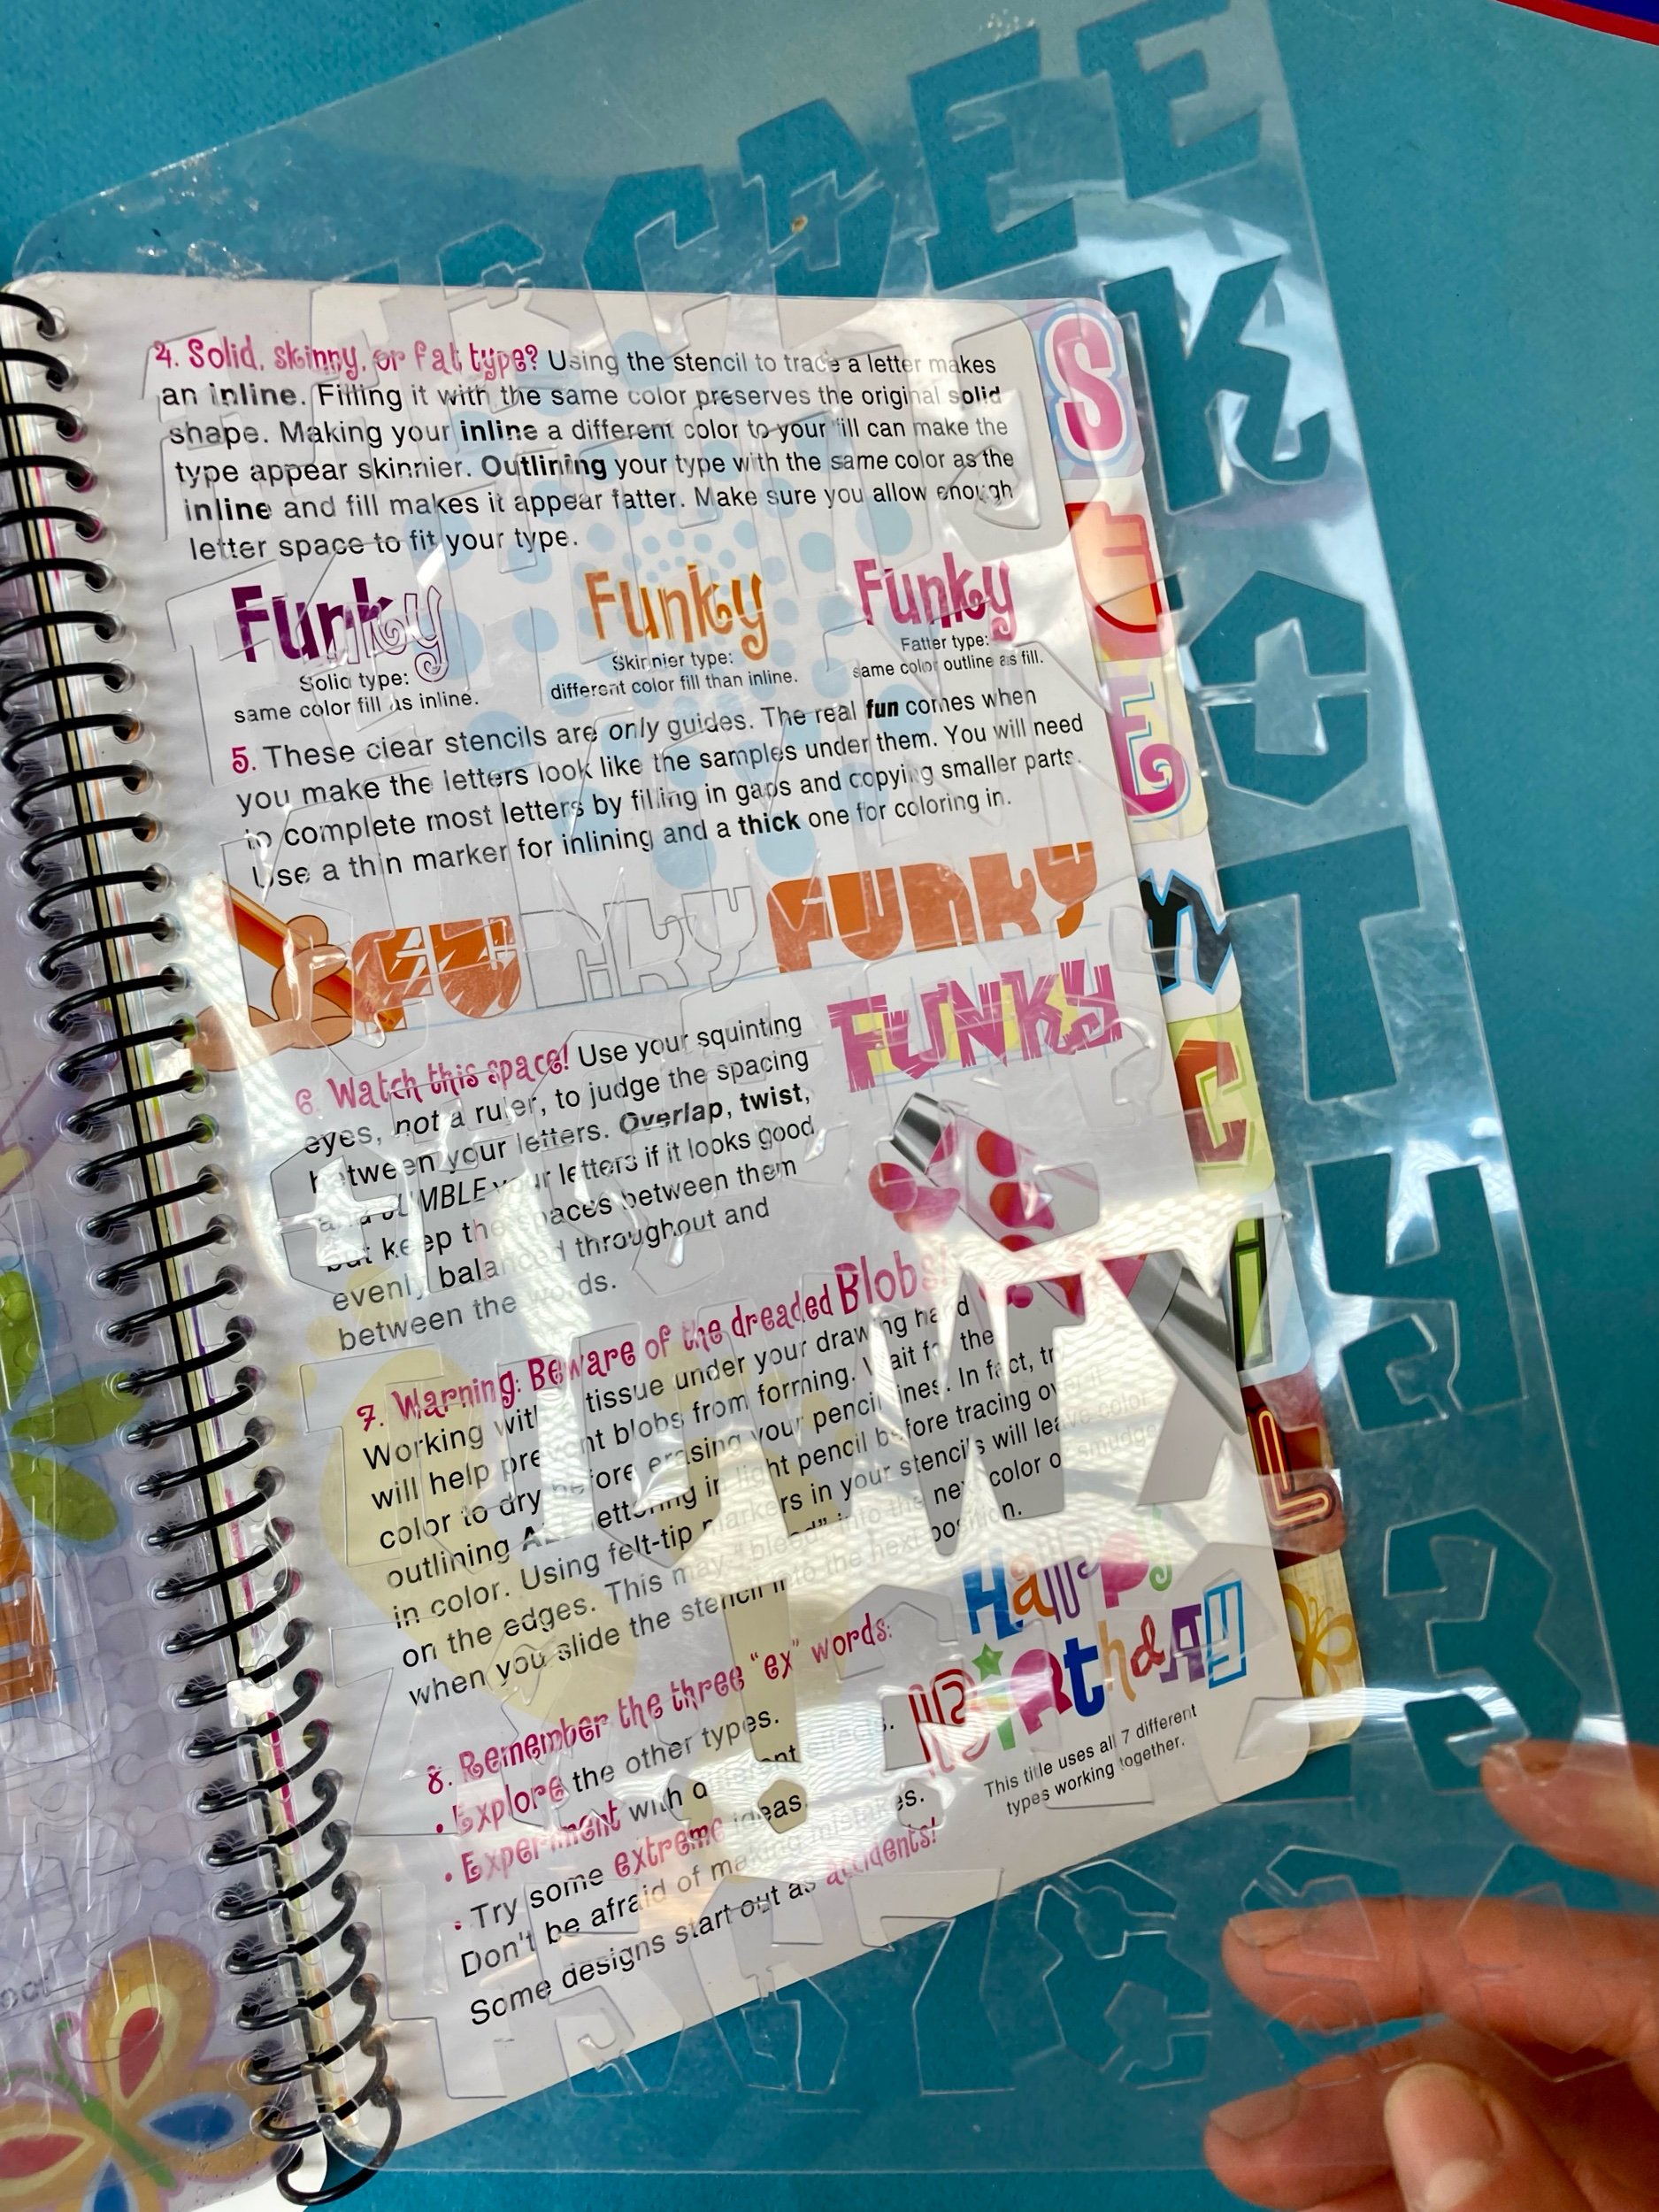 4. Solid, skinny, or fat type? Using the stencil to trace a letter makes
an inline. Filling it with the same color preserves the original solid
shape. Making your inline a different color to your fill can make the
type appear skinnier. Outlining your type with the same color as the
inline and fill makes it appear fatter. Make sure you allow enough
letter space to fit your type.
Funky
Solid type:
same color fill as inline.
Funky
Skinnier type:
different color fill than inline.
Funky
Fatter type:
same color outline as fill.
5. These clear stencils are only guides. The real fun comes when
you make the letters look like the samples under them. You will need
to complete most letters by filling in gaps and copying smaller parts.
Use a thin marker for inlining and a thick one for coloring in.
FUNKY FUNKY
FUNKY
6. Watch this space! Use your squinting
eyes, not a ruler, to judge the spacing
between your letters. Overlap, twist,
and JUMBLE your letters if it looks good
but keep the spaces between them
evenly balanced throughout and
between the words.
7. Warning: Beware of the dreaded Blobs!
Working with tissue under your drawing hand
will help prevent blobs from forming. Wait for the
color to dry before erasing your pencil lines. In fact, try
outlining ALL lettering in light pencil before tracing over it
in color. Using felt-tip markers in your stencils will leave color
on the edges. This may "bleed" into the next color or smudge
when you slide the stencil into the next position.
8. Remember the three "ex" words:
• Explore the other types.
• Experiment with
• Try some extreme ideas.
Don't be afraid of making mistakes.
Some designs start out as accidents!
Happy
Birthday
This title uses all 7 different
types working together.
S
T
E
n
C
i
L